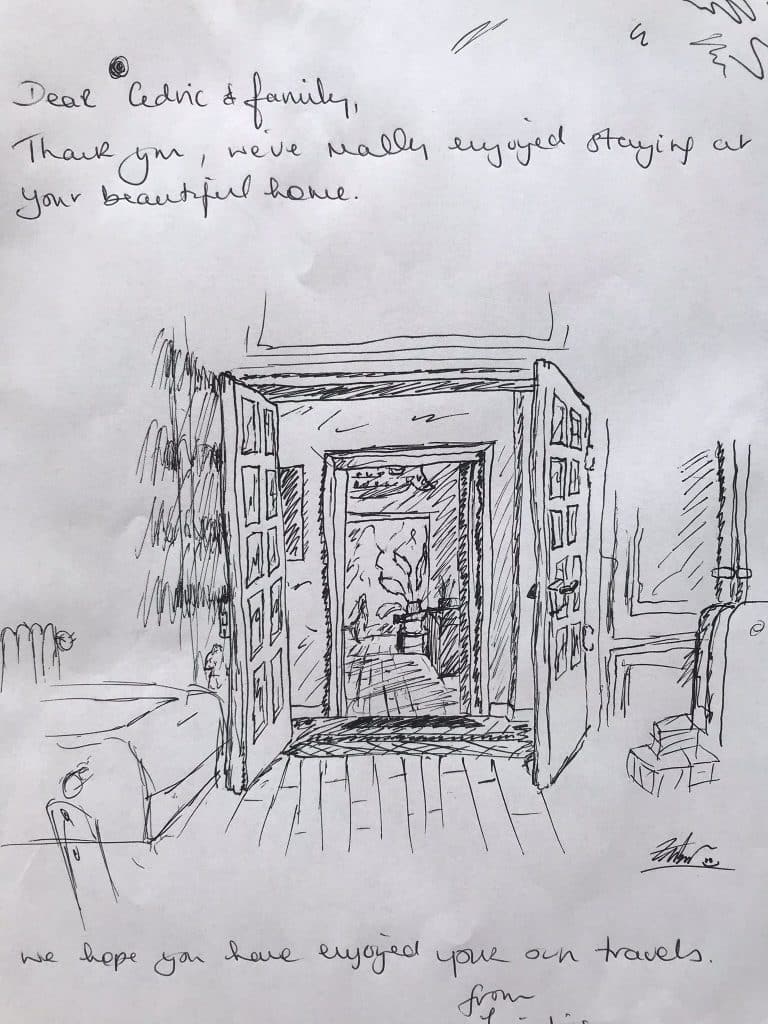 Dear Cedric & family,
Thank you, we've really enjoyed staying at
your beautiful home.
we hope you have enjoyed your own travels.
from